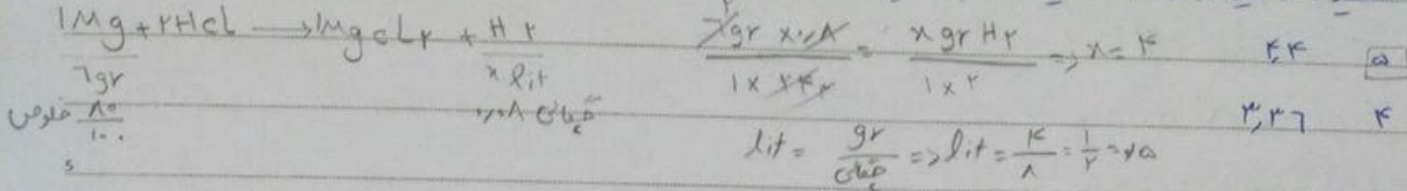 1Mg + ۲HCl → 1MgCl۲ + H۲
۶gr
x lit
خلوص ۸۰/۱۰۰
چگالی ۰/۰۸
۶gr × ۰/۸ / ۱ × ۲۴ = x gr H۲ / ۱ × ۲ ⇒ x = ۴
lit = gr / چگالی ⇒ lit = ۴/۸ = ۱/۲ = ۰/۵
۴,۴ ۵
۳,۳۶ ۴
5